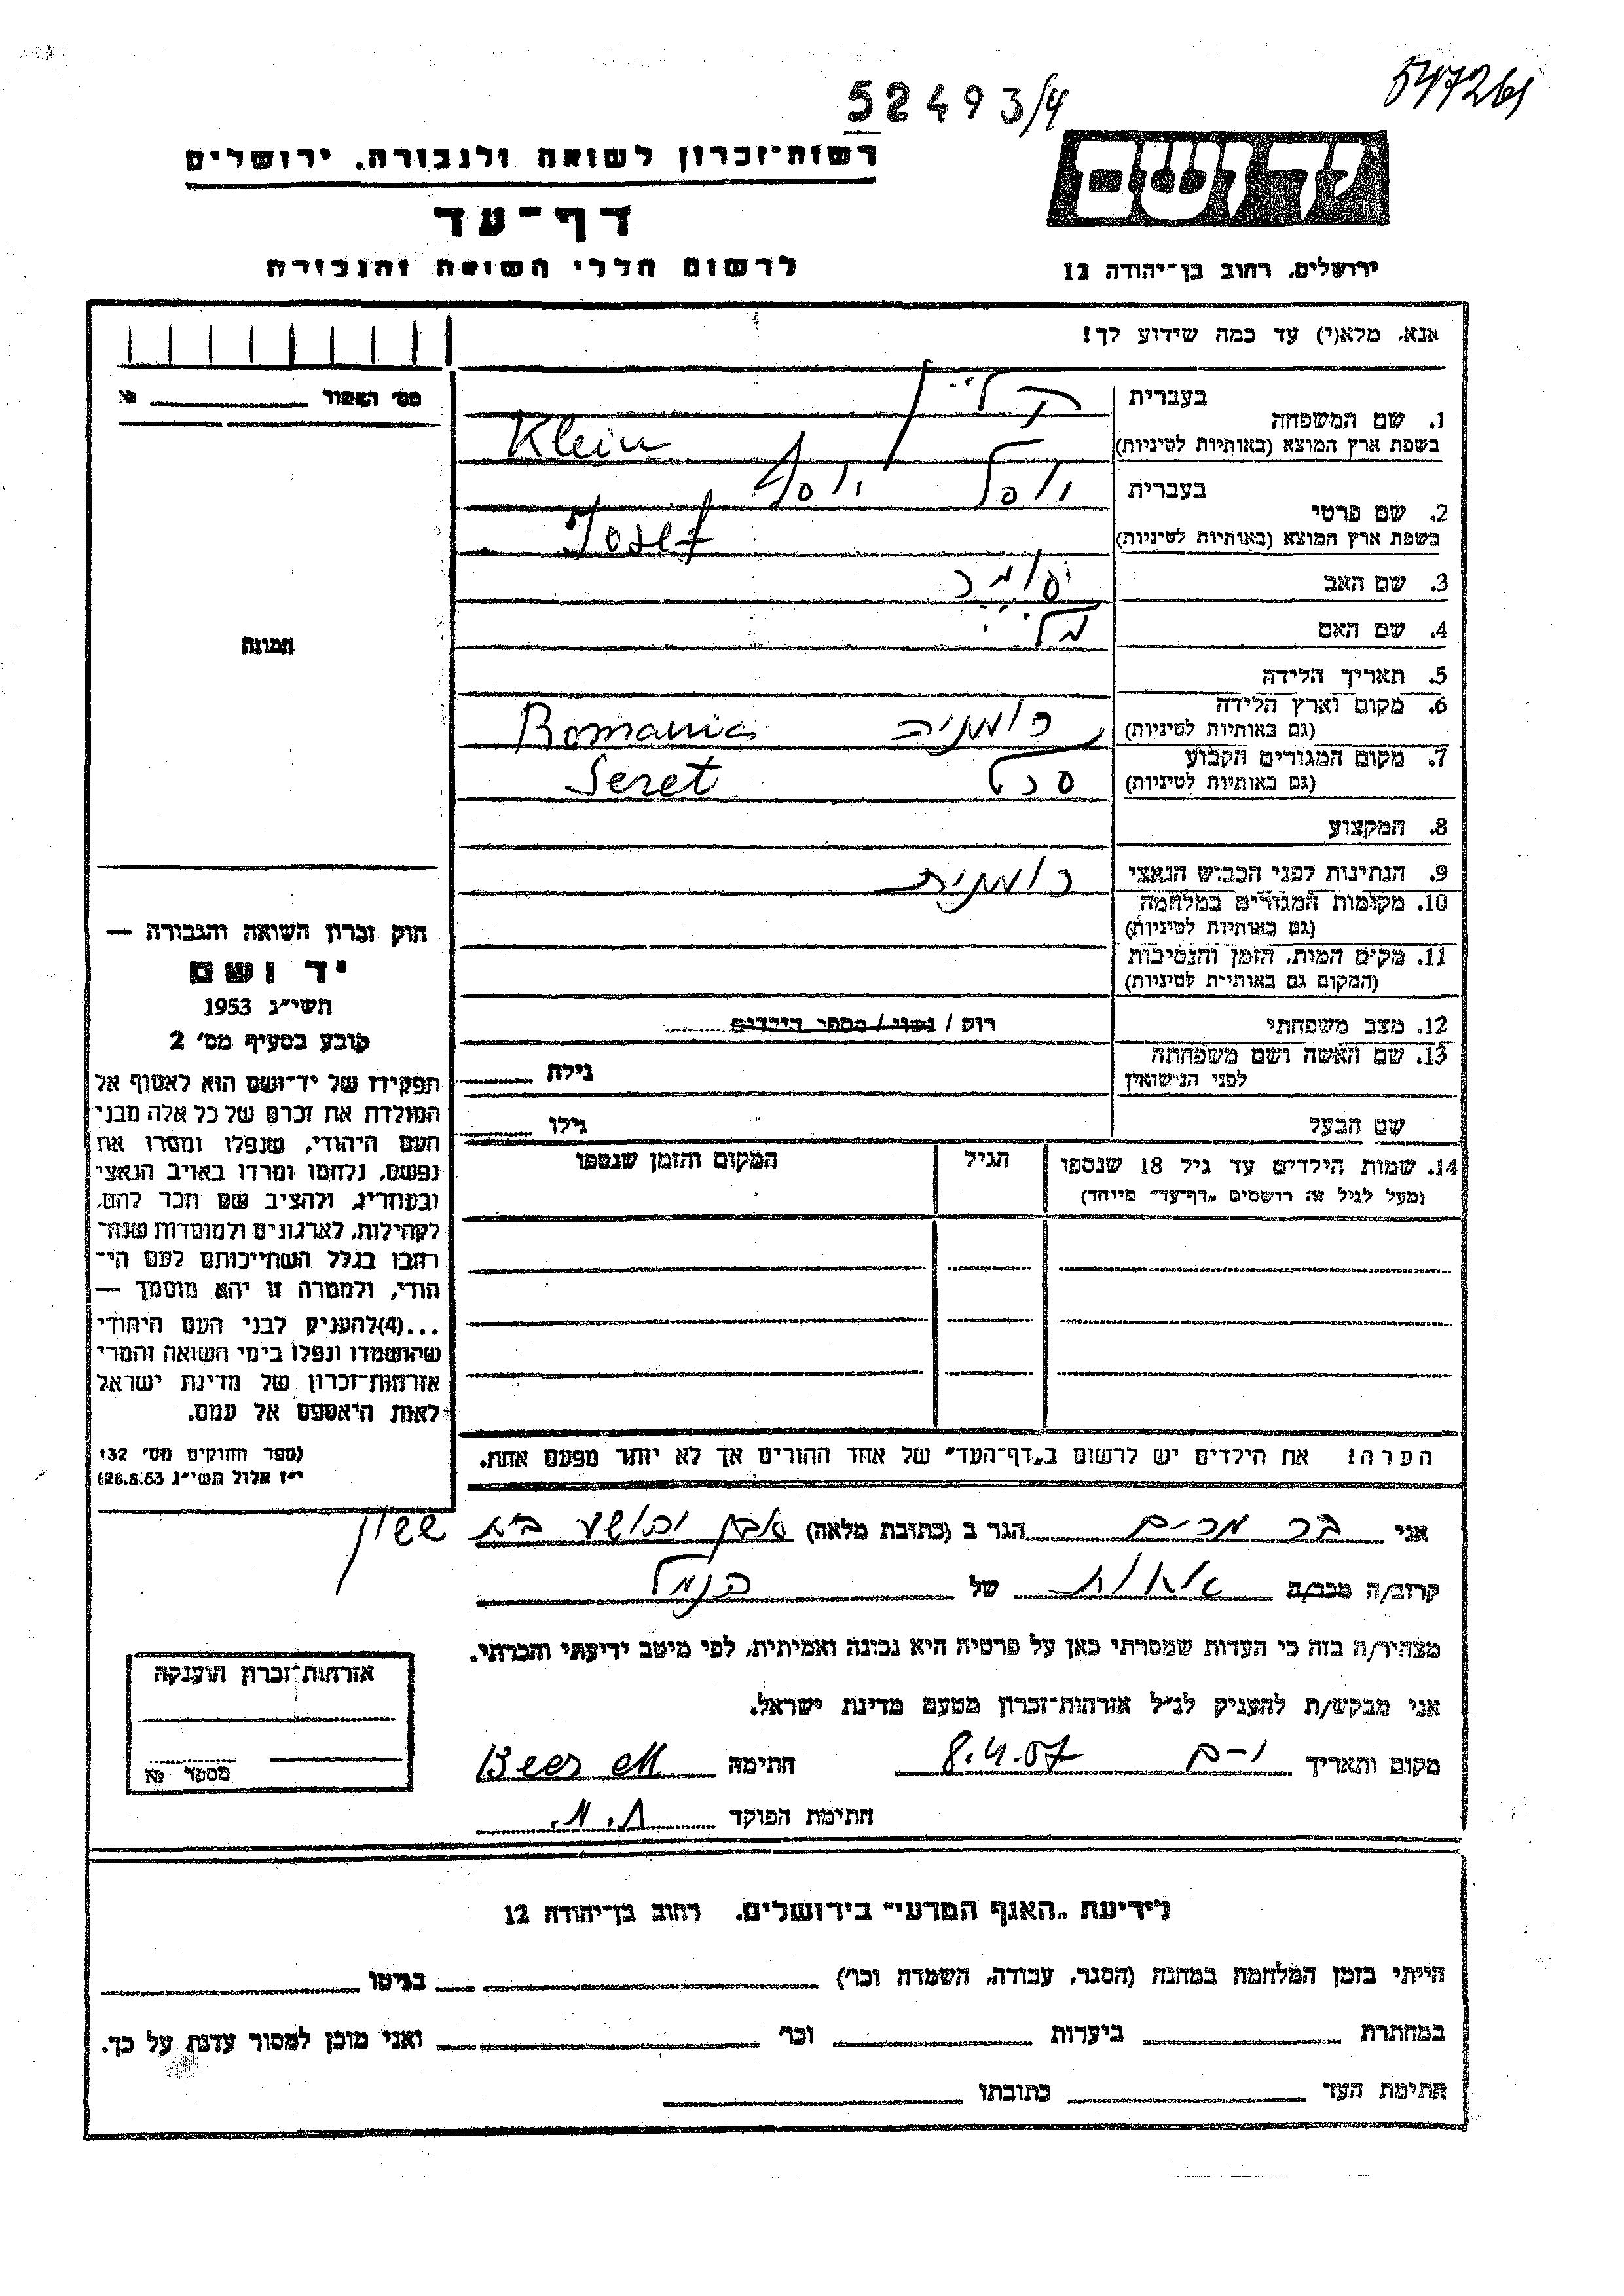 52493/4
547261
יד ושם
רשות־זכרון לשואה ולגבורה. ירושלים
דף־עד
לרשום חללי השואה והגבורה
ירושלים. רחוב בן־יהודה 12
אנא, מלא(י) עד כמה שידוע לך!
מס' האשור № 
1. שם המשפחה
בעברית קליין
בשפת ארץ המוצא (באותיות לטיניות) Klein
2. שם פרטי
בעברית יוסל יוסף
בשפת ארץ המוצא (באותיות לטיניות) Josef
3. שם האב
4. שם האם
5. תאריך הלידה
6. מקום וארץ הלידה (גם באותיות לטיניות) רומניה Romania
7. מקום המגורים הקבוע (גם באותיות לטיניות) סרט Seret
8. המקצוע
9. הנתינות לפני הכבוש הנאצי רומנית
10. מקומות המגורים במלחמה
(גם באותיות לטיניות)
11. מקום המות, הזמן והנסיבות
(המקום גם באותיות לטיניות)
12. מצב משפחתי רוק / נשוי / מספר הילדים
13. שם האשה ושם משפחתה לפני הנישואין גילה
שם הבעל גילו
14. שמות הילדים עד גיל 18 שנספו
(מעל לגיל זה רושמים "דף־עד" מיוחד)
הגיל
המקום והזמן שנספו
הערה! את הילדים יש לרשום ב"דף־העד" של אחד ההורים אך לא יותר מפעם אחת.
תמונה
חוק זכרון השואה והגבורה —
יד ושם
תשי"ג 1953
קובע בסעיף מס' 2
תפקידו של יד־ושם הוא לאסוף אל
המולדת את זכרם של כל אלה מבני
העם היהודי, שנפלו ומסרו את
נפשם, נלחמו ומרדו באויב הנאצי
ובעוזריו, ולהציב שם וזכר להם,
לקהילות, לארגונים ולמוסדות שנח־
רבו בגלל השתייכותם לעם הי־
הודי, ולמטרה זו יהא מוסמך —
...(4) להעניק לבני העם היהודי
שהושמדו ונפלו בימי השואה והמרי
אזרחות־זכרון של מדינת ישראל
לאות היאספם אל עמם.
(ספר החוקים מס' 132
י"ז אלול תשי"ג 28.8.53)
אני בר מרים הגר ב (כתובת מלאה) אבן יהושע בית ששון
קרוב/ה מכר/ה אחות של הנ"ל
מצהיר/ה בזה כי העדות שמסרתי כאן על פרטיה היא נכונה ואמיתית, לפי מיטב ידיעתי והכרתי.
אני מבקש/ת להעניק לנ"ל אזרחות־זכרון מטעם מדינת ישראל.
מקום ותאריך י-ם 8.4.57 חתימה Beer M
חתימת הפוקד
אזרחות־זכרון הוענקה
מספר №
לידיעת "האגף המדעי" בירושלים. רחוב בן־יהודה 12
הייתי בזמן המלחמה במחנה (הסגר, עבודה, השמדה וכו') בגיטו
במחתרת ביערות וכו' ואני מוכן למסור עדות על כך.
חתימת העד כתובתו